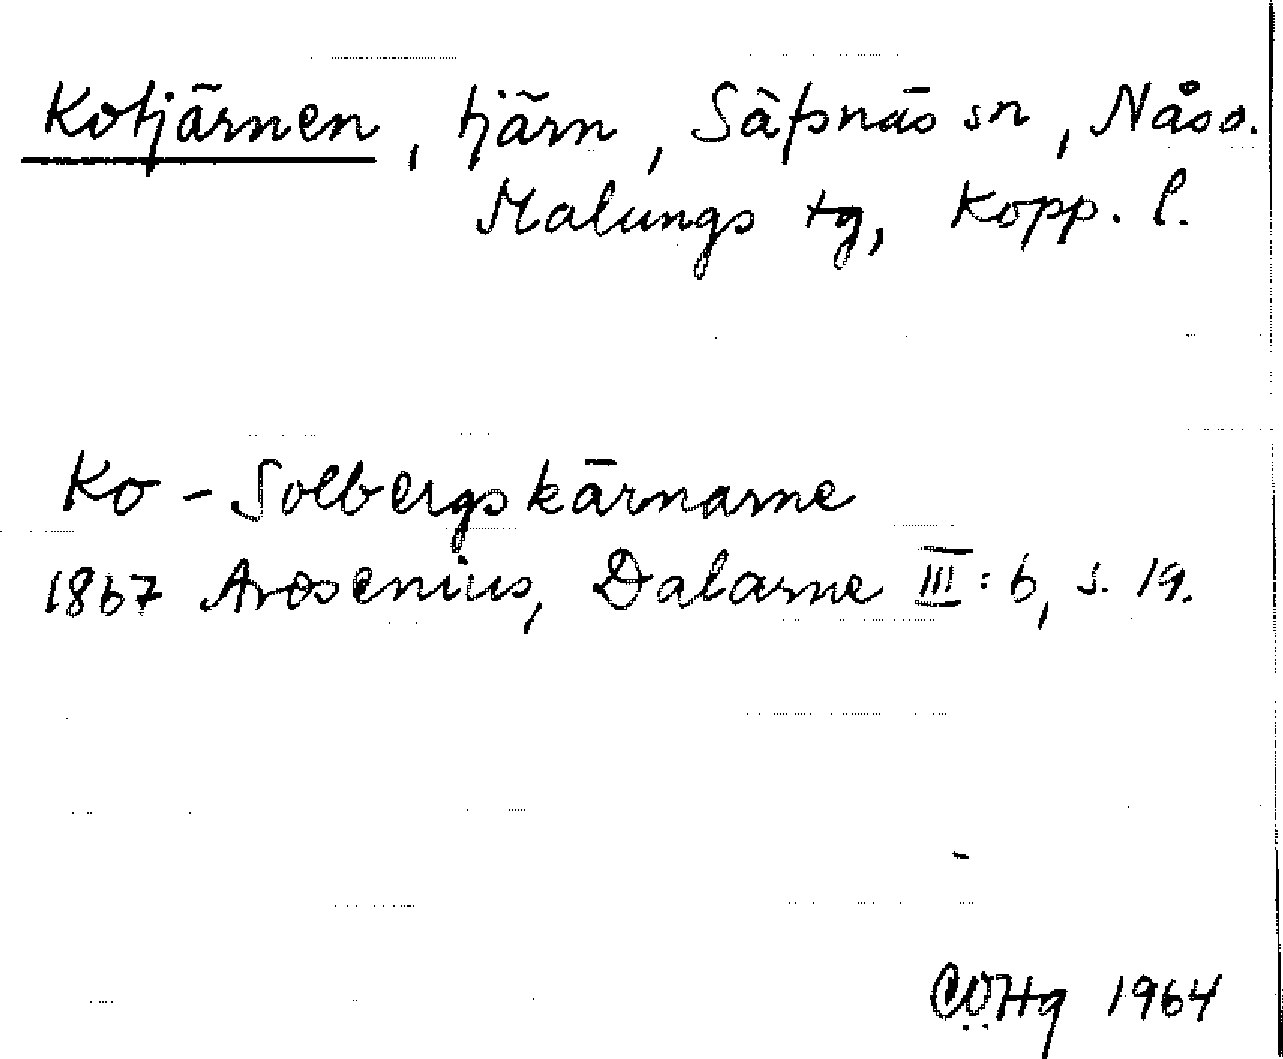 Kotjärnen, tjärn, Säfsnäs sn, Nås o.
Malungs tg, Kopp. l.
Ko-Solbergskärnarne
1867 Arosenius, Dalarne III: 6, s. 19.
CÖHg 1964